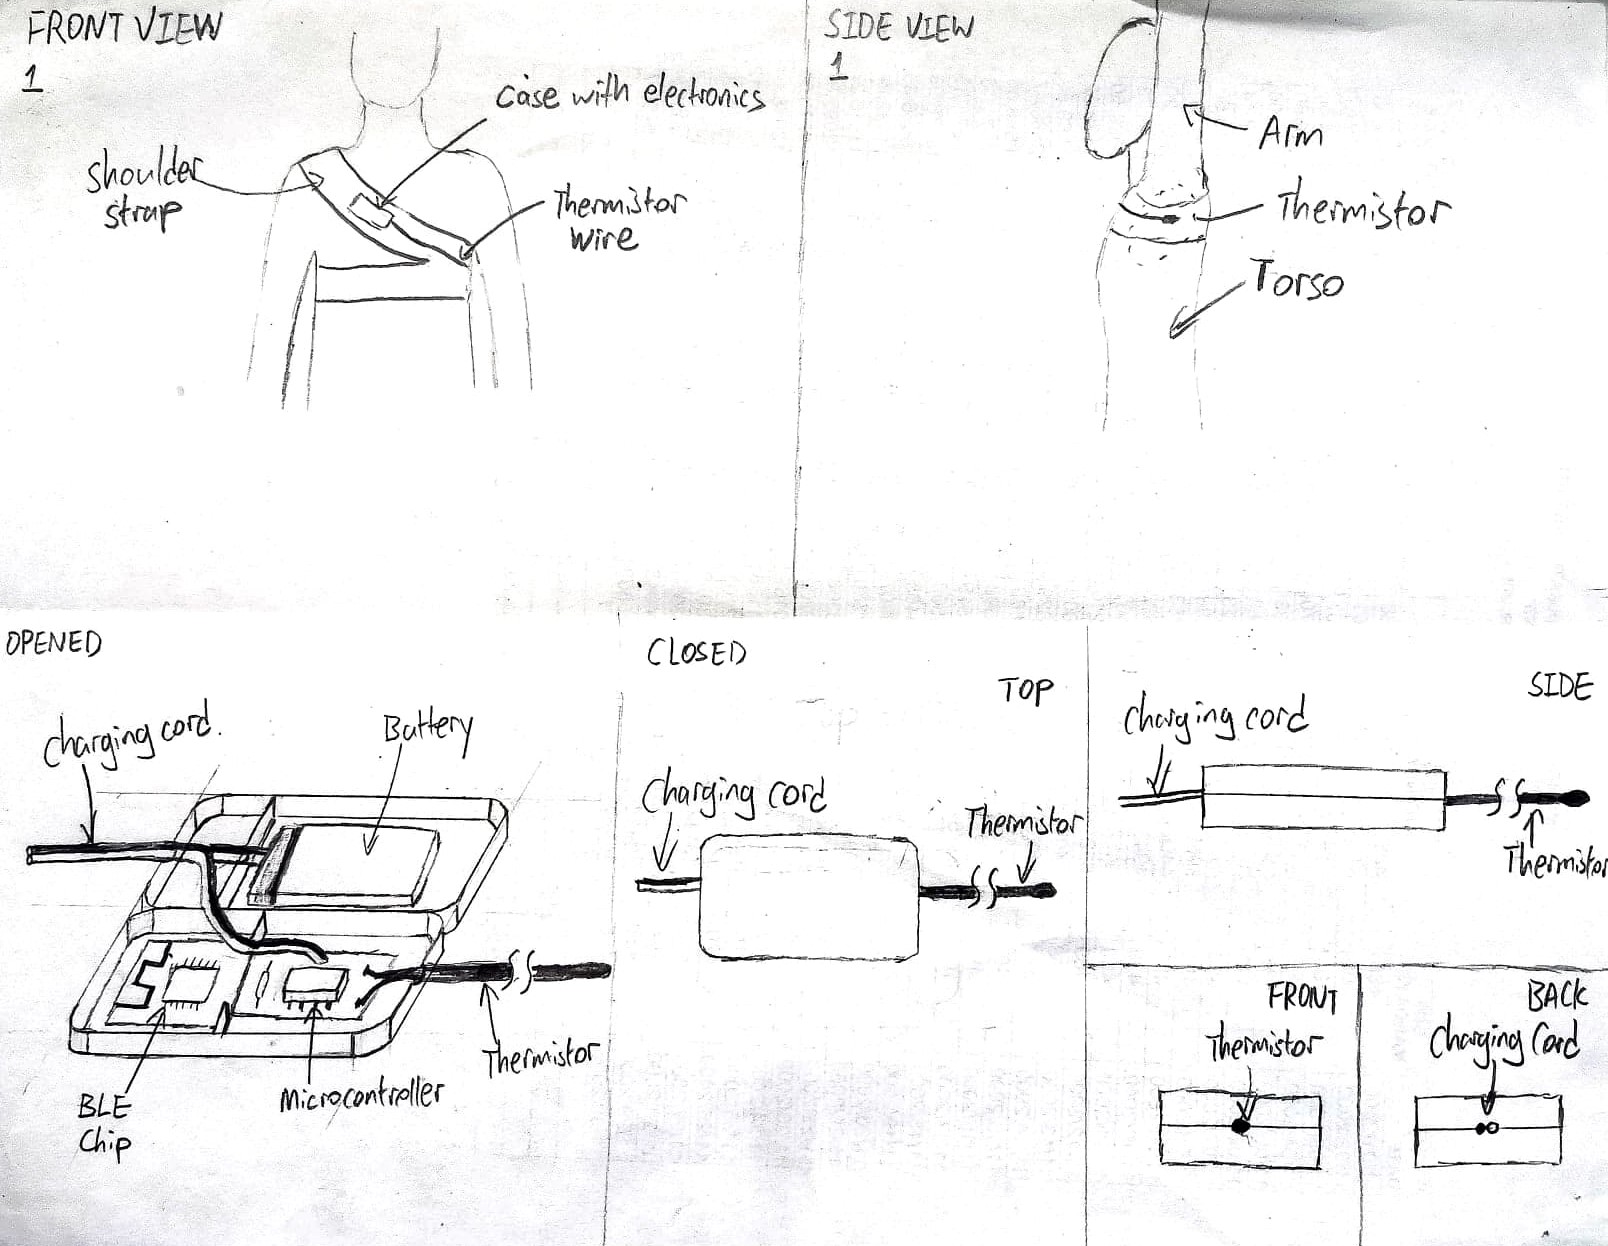 FRONT VIEW
1
Case with electronics
shoulder
strap
Thermistor
wire
SIDE VIEW
1
Arm
Thermistor
Torso
OPENED
Charging cord.
Battery
BLE
Chip
Microcontroller
Thermistor
CLOSED
TOP
Charging cord
Thermistor
SIDE
Charging cord
Thermistor
FRONT
Thermistor
BACK
Charging Cord